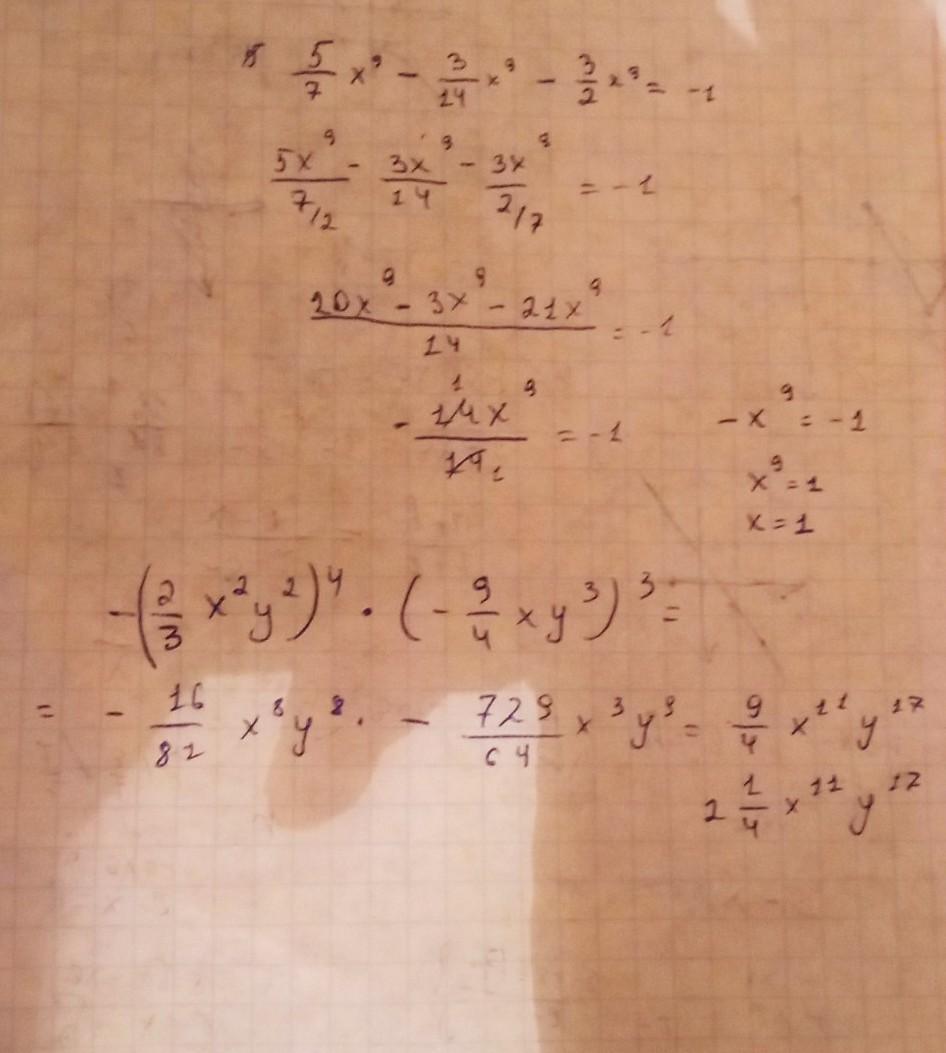 5/7 x⁹ - 3/14 x⁹ - 3/2 x⁹ = -1
5x⁹/7/2 - 3x⁹/14 - 3x⁹/2/7 = -1
20x⁹ - 3x⁹ - 21x⁹/14 = -1
- 14x⁹/14 = -1
1 1
-x⁹ = -1
x⁹ = 1
x = 1
-(2/3 x²y²)⁴ · (-9/4 xy³)³ =
= - 16/81 x⁸y⁸ · - 729/64 x³y⁹ = 9/4 x¹¹y¹⁷
2 1/4 x¹¹y¹⁷